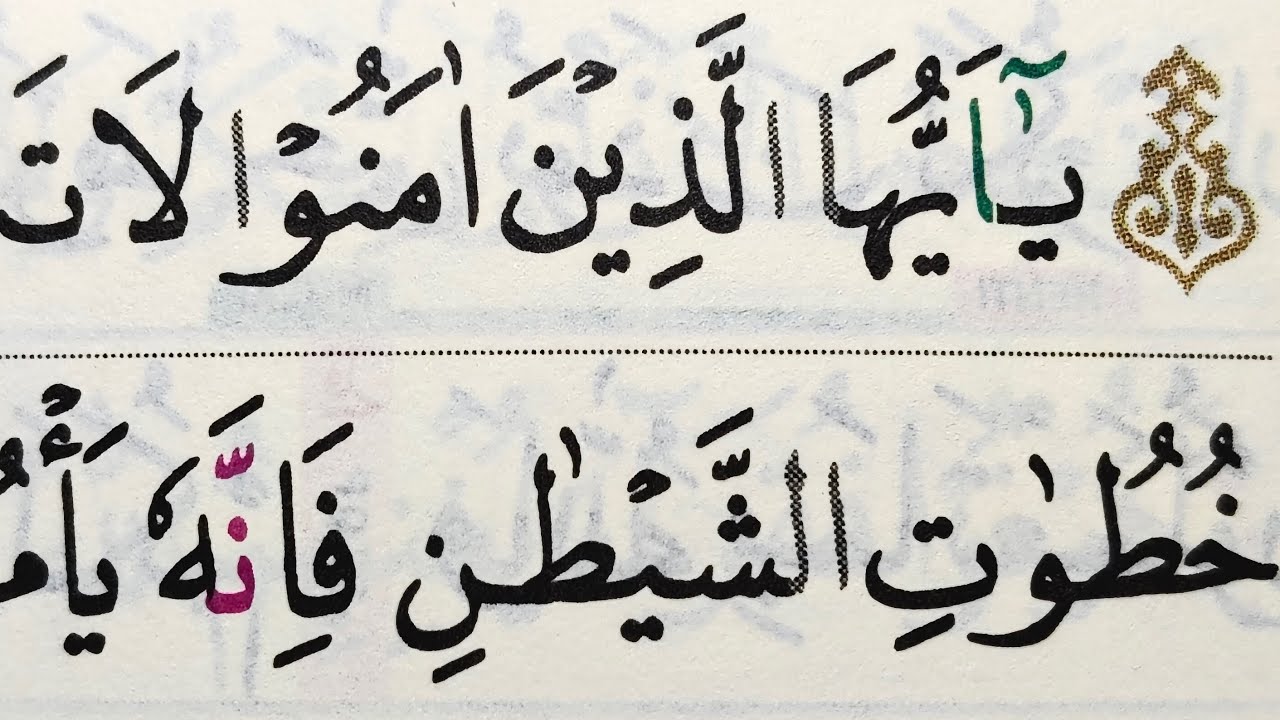 يٰٓاَيُّهَا الَّذِيْنَ اٰمَنُوْا لَا تَ
خُطُوٰتِ الشَّيْطٰنِ فَاِنَّهٗ يَأْمُ